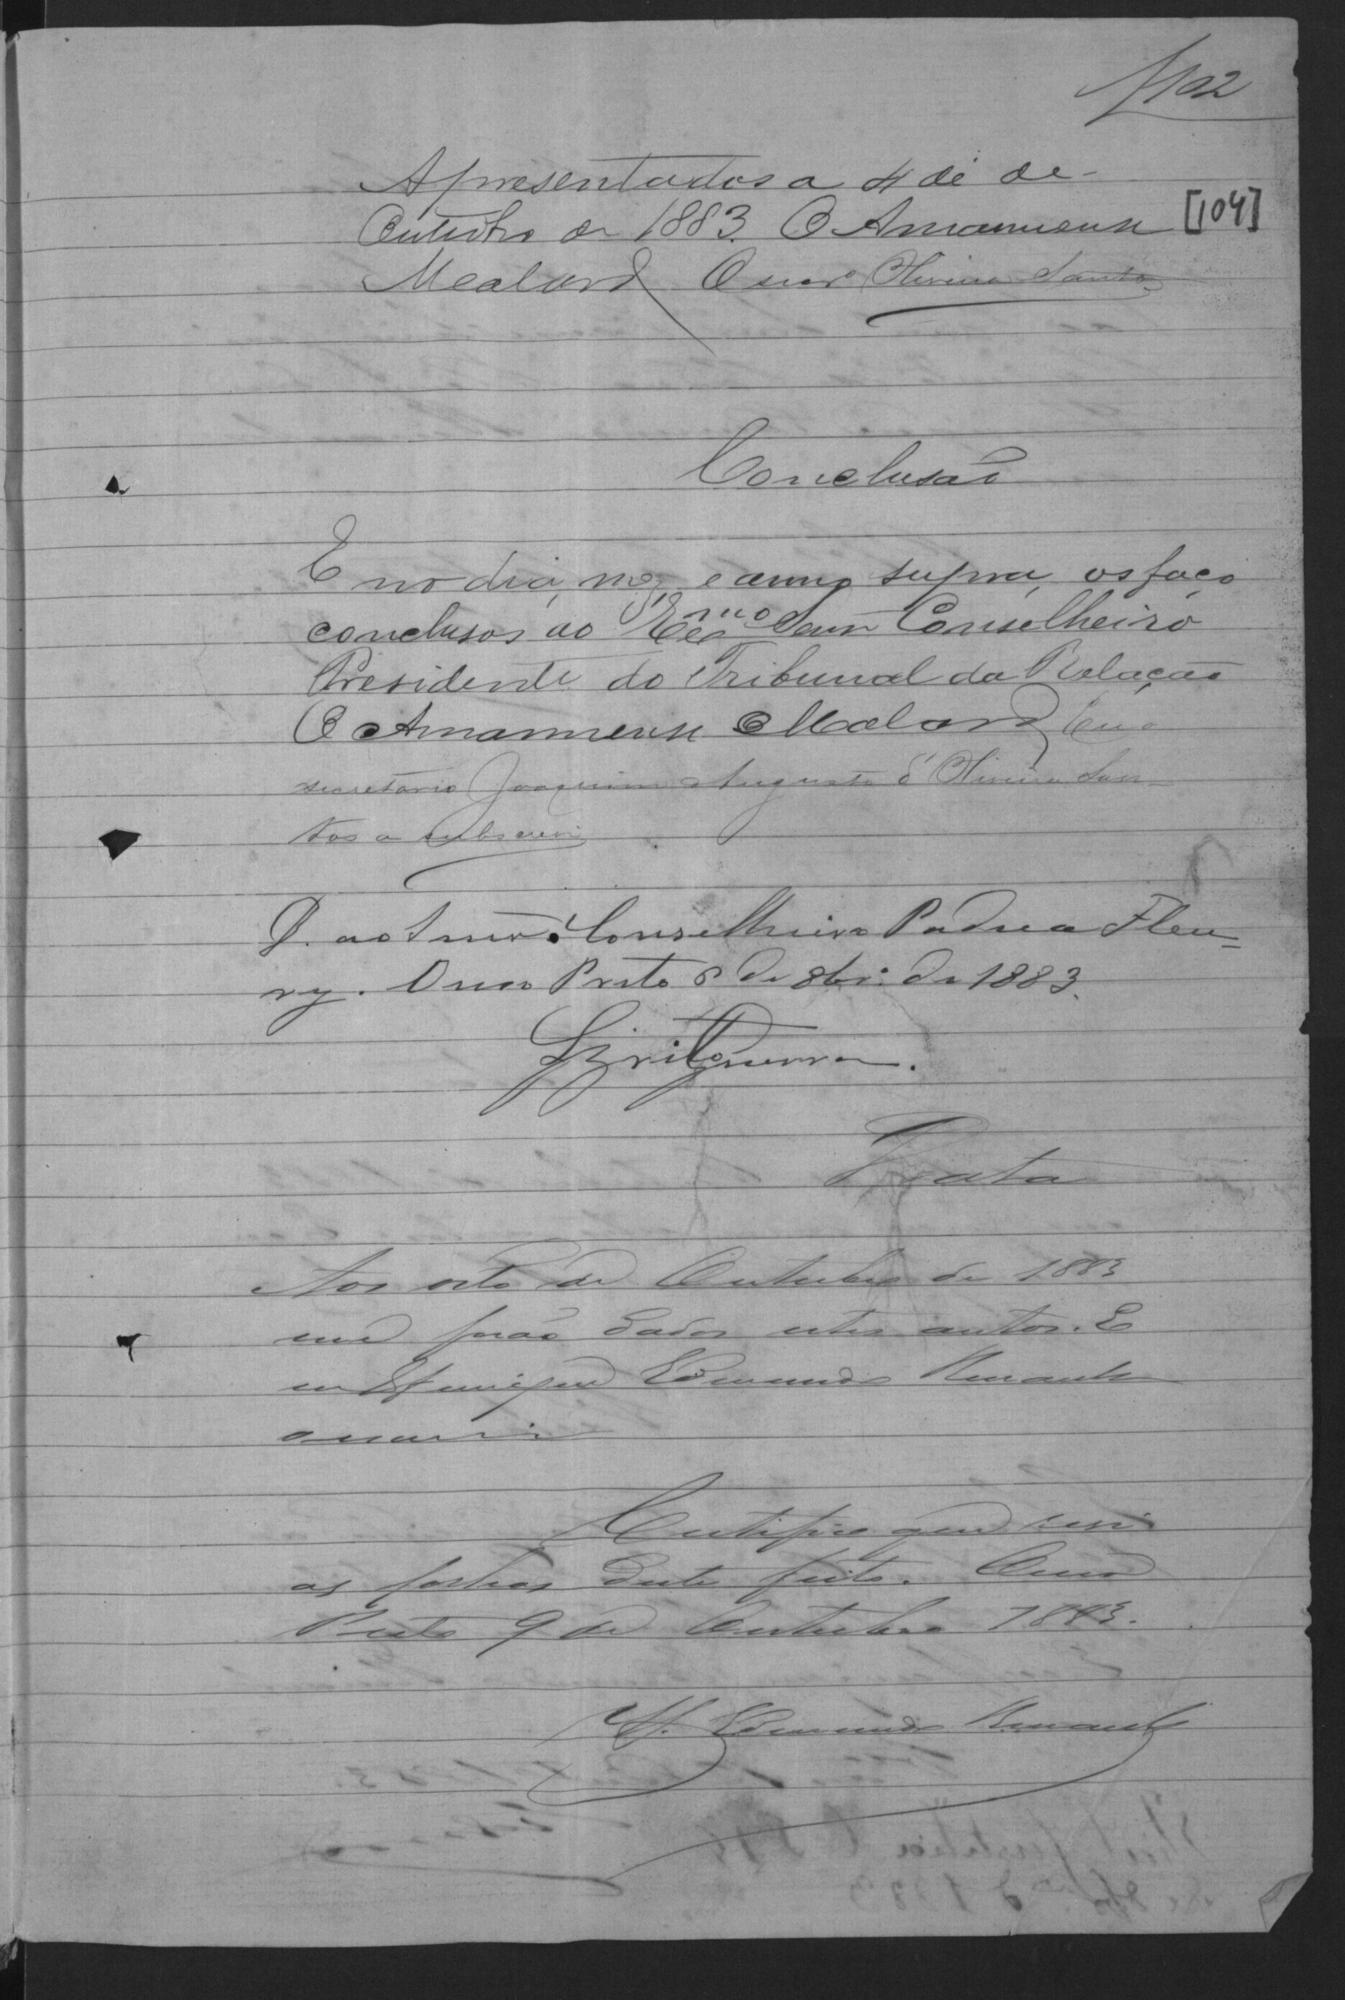 102
Apresentados a 4 de de
Outubro de 1883. O Amanuense
[104]
Malard Oliveira Santos
Conclusão
E no dia, mez, e anno supra, os faço
conclusos ao Exmo Senr Conselheiro
Presidente do Tribunal da Relação
O Amanuense Malard Eu o
secretario Joaquim Augusto d'Oliveira San-
tos o subscrevi
D. ao Snr. Conselheiro Padua Fleu-
ry. Ouro Preto 6 de 8bro de 1883.
Brito Guerra.
Data
Aos oito de Outubro de 1883
me forão dados estes autos. E
eu Henrique Edmundo Renault
escrevi
Certifico que revi
as folhas deste feito. Ouro
Preto 9 de Outubro 1883.
H. Edmundo Renault